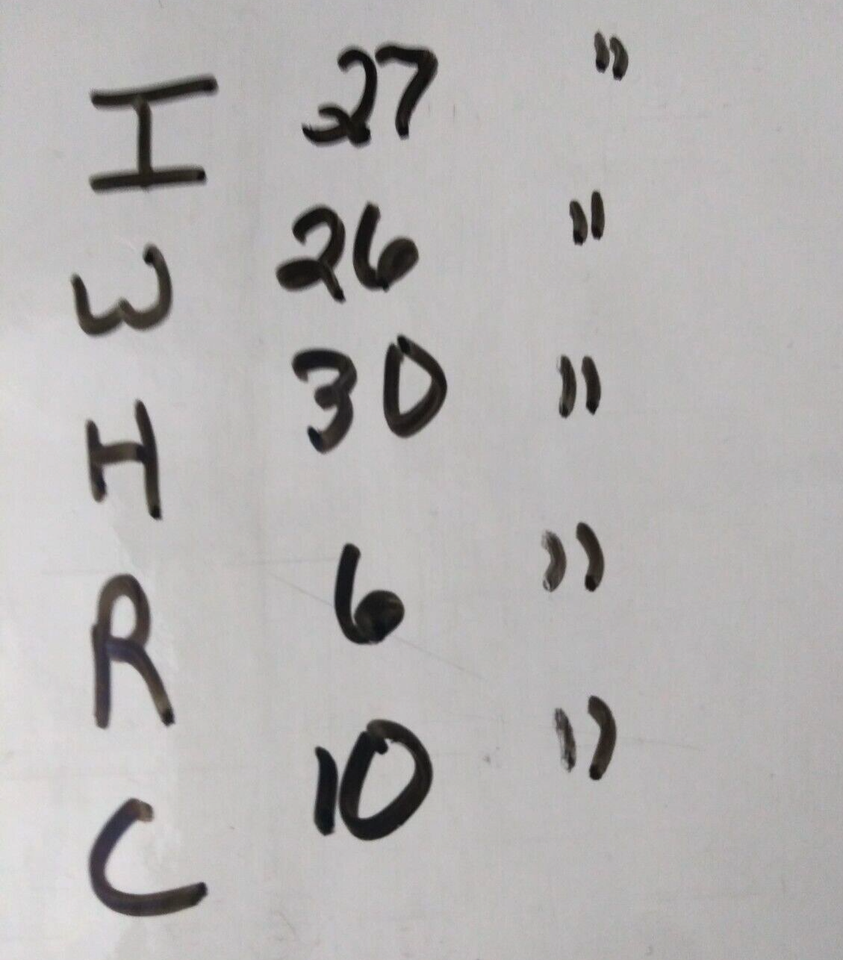 I 27 "
W 26 "
H 30 "
R 6 "
C 10 "